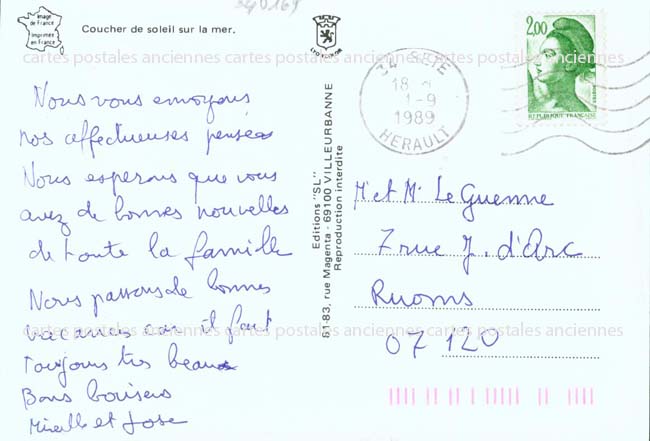 image
de France
Imprimée
en France
Coucher de soleil sur la mer.
LYON
34 SETE
18 H
1-9
1989
HERAULT
2,00
REPUBLIQUE FRANÇAISE
cartes postales anciennes cartes postales anciennes cartes postales anciennes
Nous vous envoyons
nos affectueuses pensées
Nous esperons que vous
avez de bonnes nouvelles
de toute la famille
Nous passons de bonnes
vacances car il fait
Toujours très beau
Bons baisers
Mireille et Jose
Editions "SL"
61-83, rue Magenta - 69100 VILLEURBANNE
Reproduction interdite
M et Me Le Guenne
7 rue J. d'Arc
Ruoms
07120
cartes postales anciennes cartes postales anciennes cartes postales anciennes